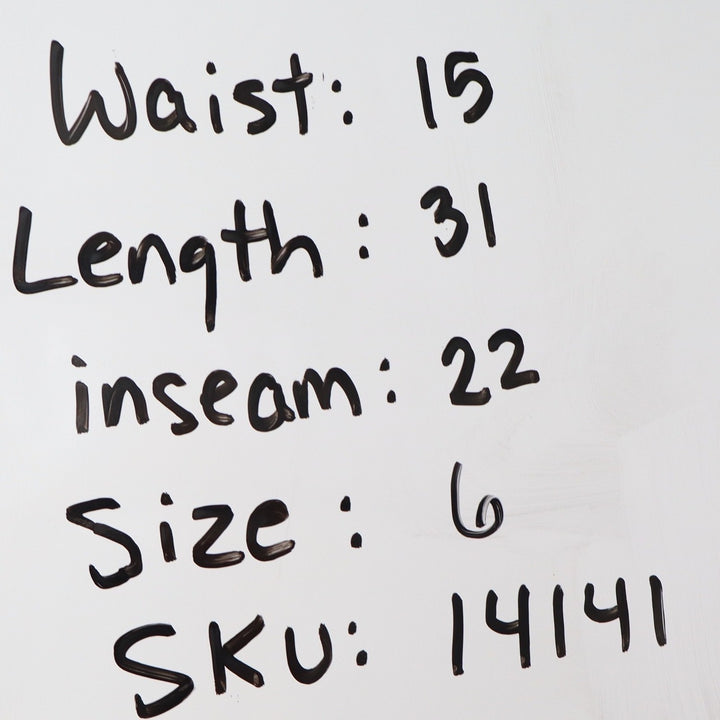 Waist: 15
Length: 31
inseam: 22
Size: 6
SKU: 14141